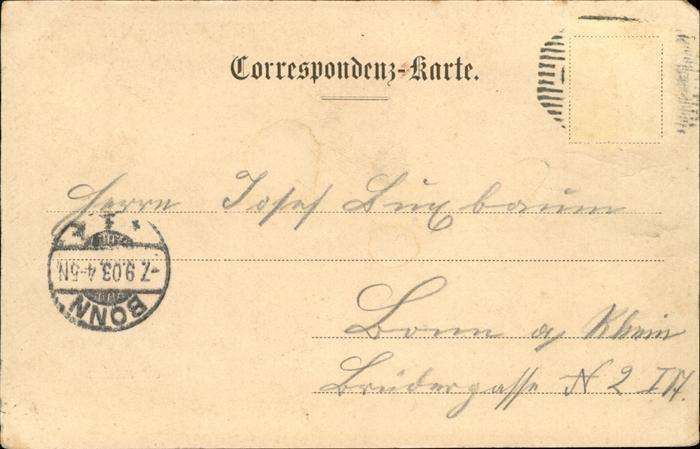 Correspondenz-Karte.
Herrn Josef Buxbaum
F
-7.9.03.4-5N
BONN
Bonn a/ Rhein
Brüdergasse N 2 III.